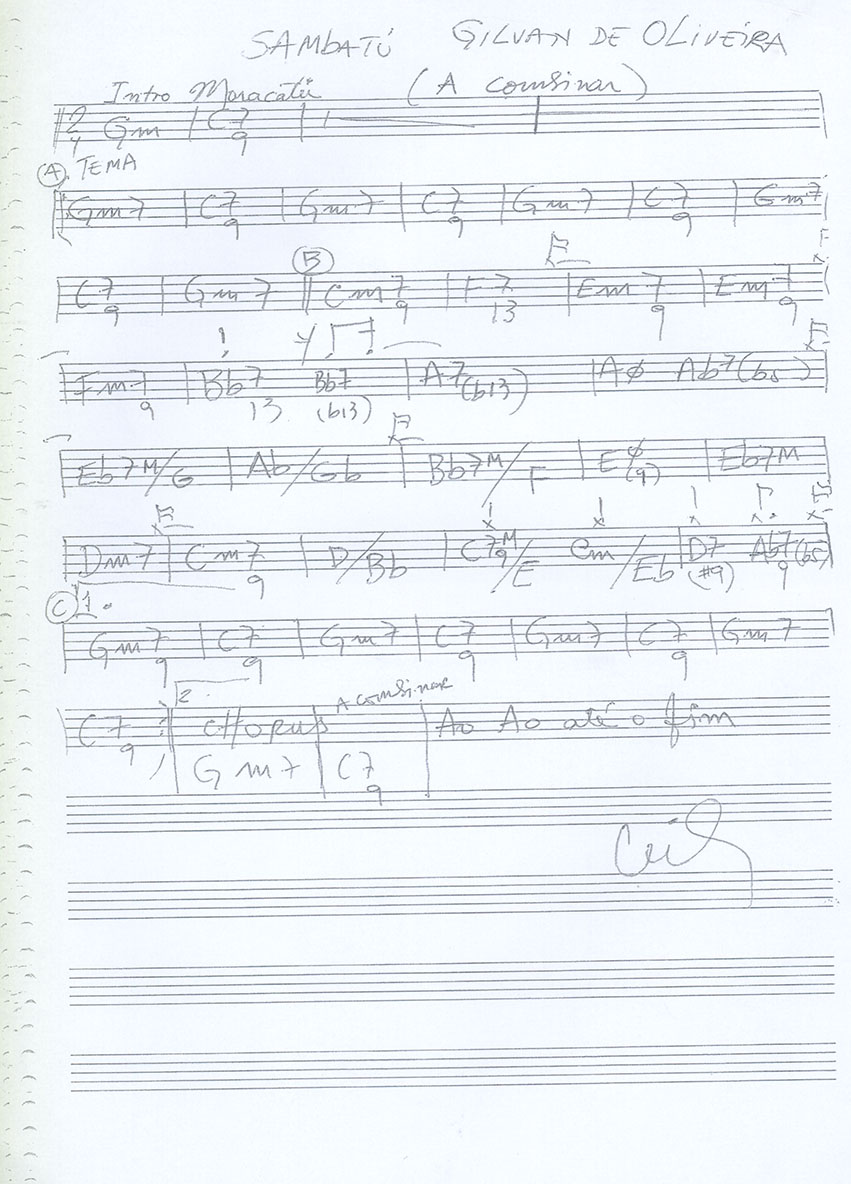 SAMBATÚ GILVAN DE OLIVEIRA
Intro Maracatú (A combinar)
2/4 Gm | C7 9 |
(A) TEMA
Gm7 | C7 9 | Gm7 | C7 9 | Gm7 | C7 9 | Gm7
(B)
C7 9 | Gm7 || Cm7 9 | F7 13 | Em7 9 | Em7 9
Fm7 9 | Bb7 13 Bb7 (b13) | A7 (b13) | AØ Ab7(b5)
Eb7M/G | Ab/Gb | Bb7M/F | EØ (9) | Eb7M
Dm7 | Cm7 9 | D/Bb | C7M 9/E Cm/Eb | D7 (#9) Ab7(b5) 9
(C) 1.
Gm7 9 | C7 9 | Gm7 | C7 9 | Gm7 | C7 9 | Gm7
2. A combinar
C7 9 :|| CHORUS | | Ao Ao até o fim
Gm7 | C7 9